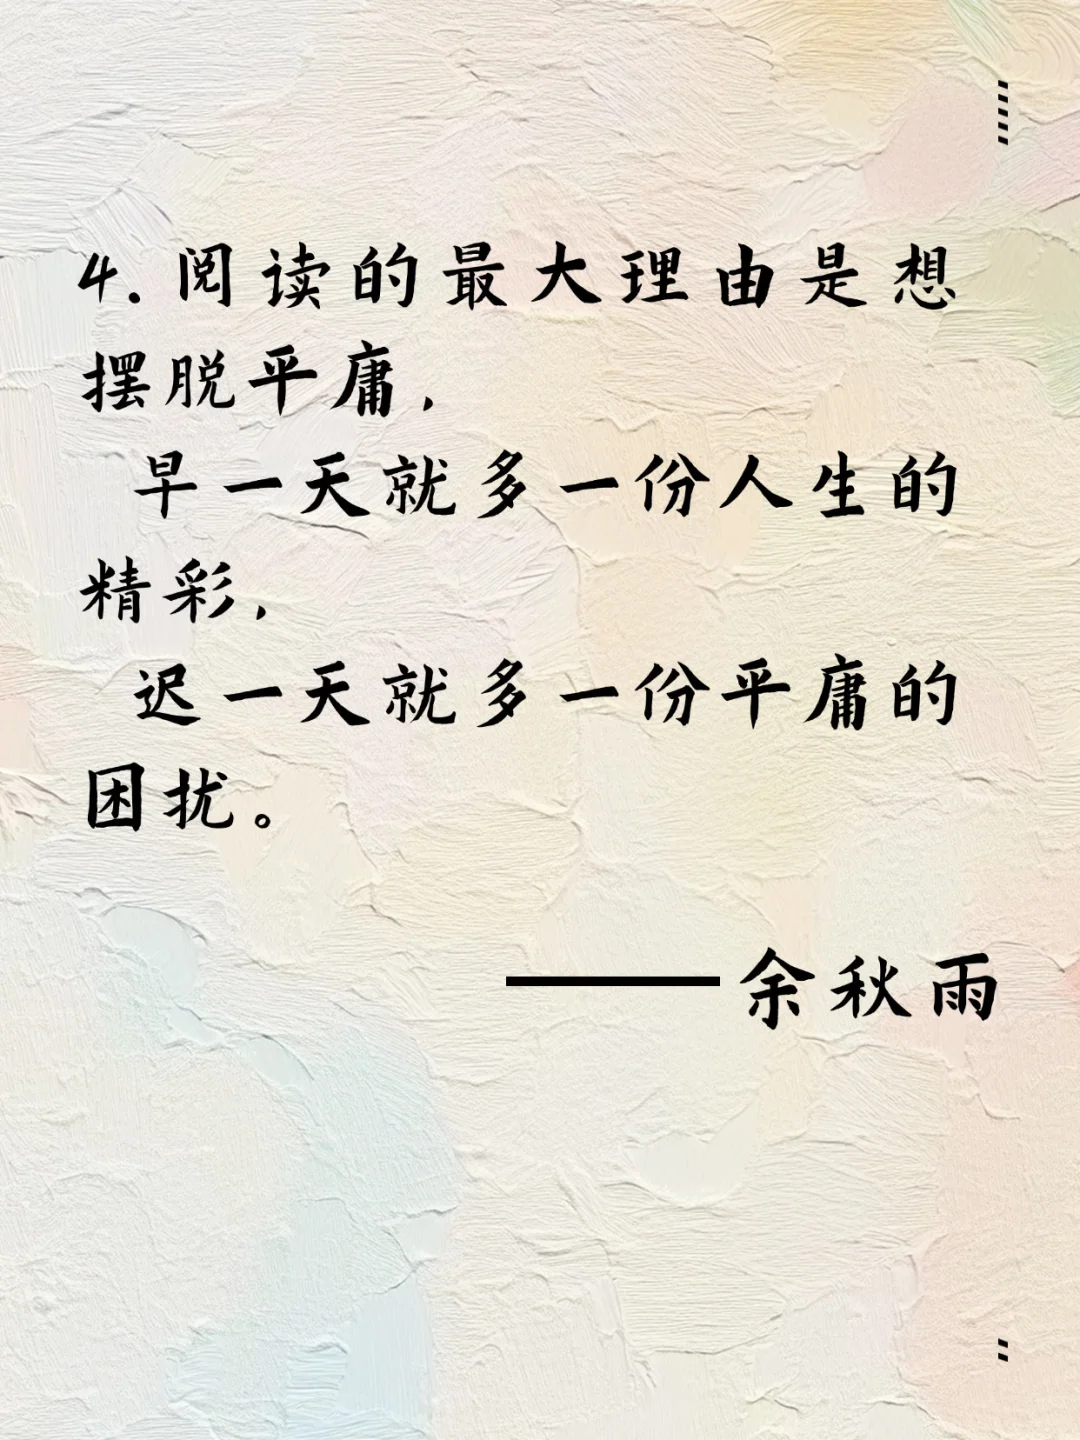 4.阅读的最大理由是想
摆脱平庸，
早一天就多一份人生的
精彩，
迟一天就多一份平庸的
困扰。
——余秋雨